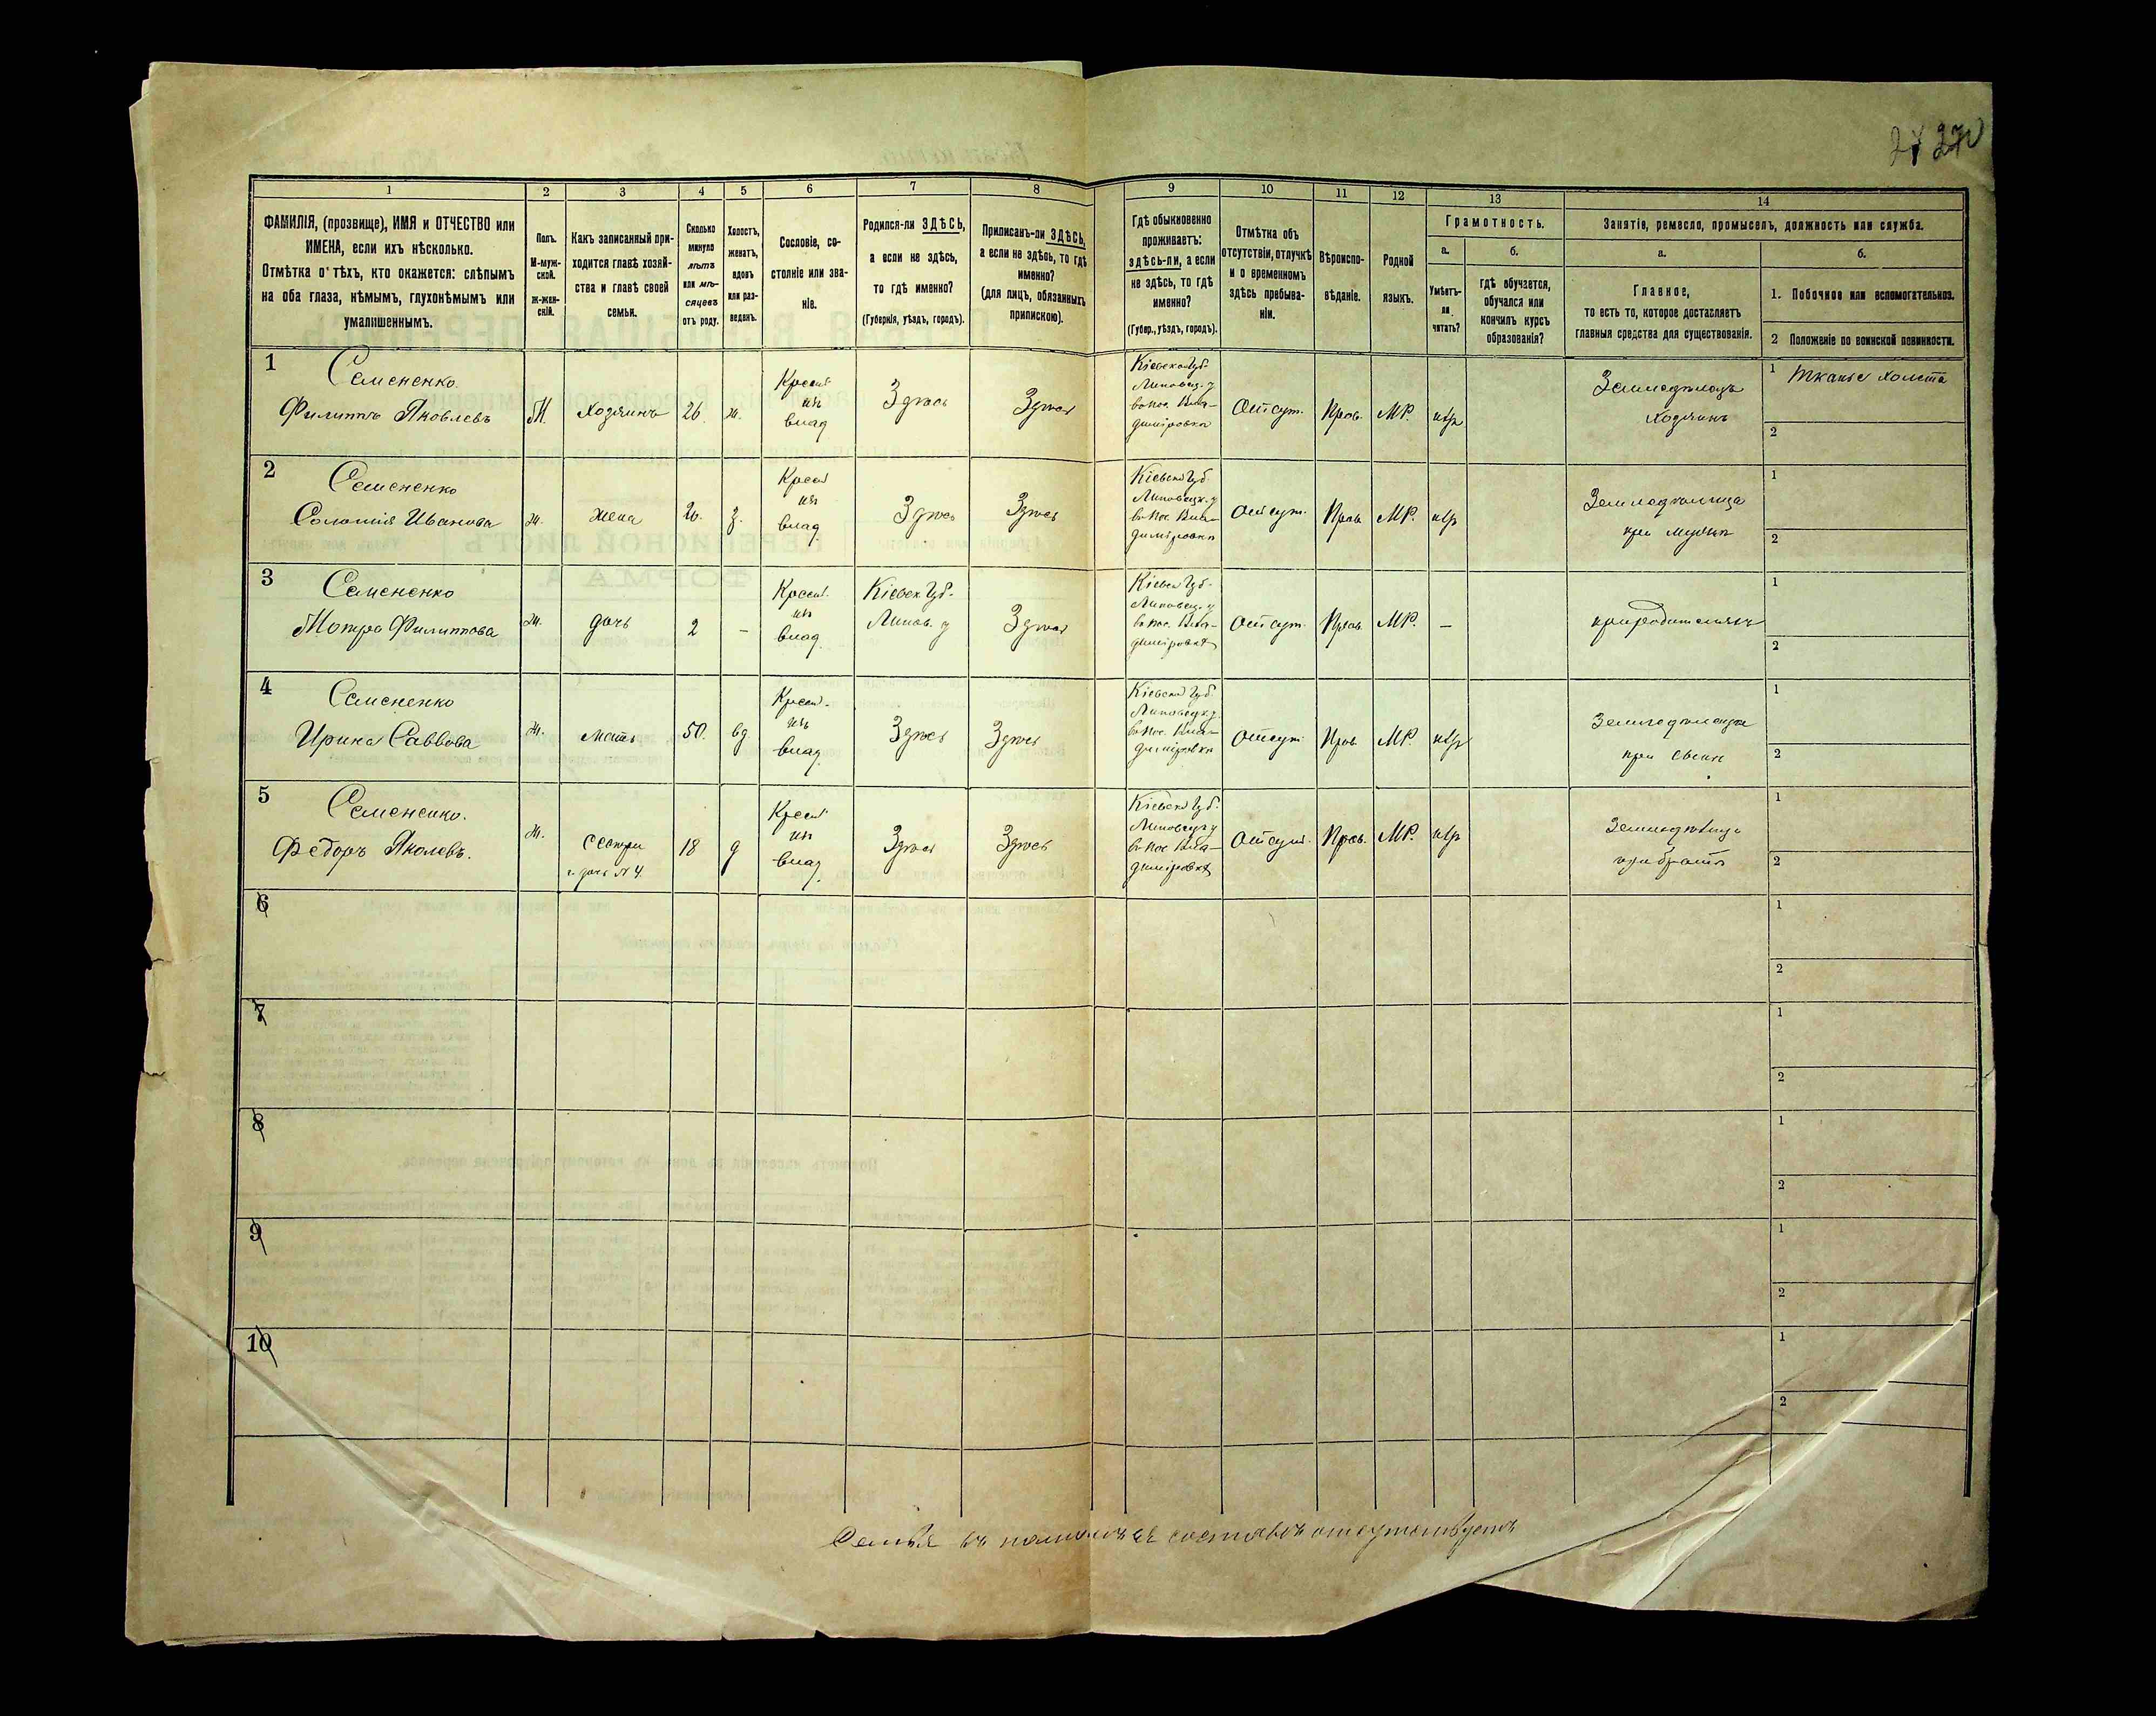 27 270
1
2
3
4
5
6
7
8
9
10
11
12
13
14
ФАМИЛІЯ, (прозвище), ИМЯ и ОТЧЕСТВО или
ИМЕНА, если ихъ нѣсколько.
Отмѣтка о тѣхъ, кто окажется: слѣпымъ
на оба глаза, нѣмымъ, глухонѣмымъ или
умалишеннымъ.
Полъ.
М-муж-
ской.
ж-жен-
скій.
Какъ записанный при-
ходится главѣ хозяй-
ства и главѣ своей
семьи.
Сколько
минуло
лѣтъ
или мѣ-
сяцевъ
отъ роду.
Холостъ,
женатъ,
вдовъ
или раз-
веденъ.
Сословіе, со-
стояніе или зва-
ніе.
Родился-ли ЗДѢСЬ,
а если не здѣсь,
то гдѣ именно?
(Губернія, уѣздъ, городъ).
Приписанъ-ли ЗДѢСЬ,
а если не здѣсь, то гдѣ
именно?
(для лицъ, обязанныхъ
припискою).
Гдѣ обыкновенно
проживаетъ:
здѣсь-ли, а если
не здѣсь, то гдѣ
именно?
(Губер., уѣздъ, городъ).
Отмѣтка объ
отсутствіи, отлучкѣ
и о временномъ
здѣсь пребыва-
ніи.
Вѣроиспо-
вѣданіе.
Родной
языкъ.
Грамотность.
а.
Умѣетъ-
ли
читать?
б.
гдѣ обучается,
обучался или
кончилъ курсъ
образованія?
Занятіе, ремесло, промыселъ, должность или служба.
а.
Главное,
то есть то, которое доставляетъ
главныя средства для существованія.
б.
1. Побочное или вспомогательное.
2 Положеніе по воинской повинности.
1
Семененко
Филиппъ Яковлевъ
М.
Хозяинъ
26
ж.
Крест.
изъ
влад
Здѣсь
Здѣсь
Кіевской Губ.
Липовец. у
Вла-
диміровка
Отсут.
Прав.
МР.
нѣт
Земледѣлецъ
Хозяинъ
1 Тканье холста
2
2
Семененко
Соломія Иванова
ж.
жена
26.
з.
Крест
изъ
влад
Здѣсь
Здѣсь
Кіевской Губ
Липовецк. у
Вла-
диміровка
Отсут.
Прав
МР.
нѣт
Земледѣлица
при мужѣ
1
2
3
Семененко
Мотря Филиппова
ж.
дочь
2
-
Крест.
изъ
влад.
Кіевск Губ.
Липов. у
Здѣсь
Кіевск Губ.
Липовец. у
Вла-
диміровка
Отсут.
Прав.
МР.
-
при родителяхъ
1
2
4
Семененко
Ирина Саввова
ж.
мать
50.
вд.
Крест.
изъ
влад.
Здѣсь
Здѣсь
Кіевской Губ.
Липовецк у.
Вла-
диміровка
Отсут
Прав
МР.
нѣт
Земледѣлица
при сынѣ
1
2
5
Семененко.
Федоръ Яколевъ.
ж.
сестра
дочь N 4.
18
д
Крест
изъ
влад.
Здѣсь
Здѣсь
Кіевской Губ.
Липовецк у
Вла-
диміровка
Отсут.
Прав.
МР.
нѣт
при братѣ
1
2
6
1
2
7
1
2
8
1
2
9
1
2
10
1
2
Семья въ полномъ ея составѣ отсутствуетъ